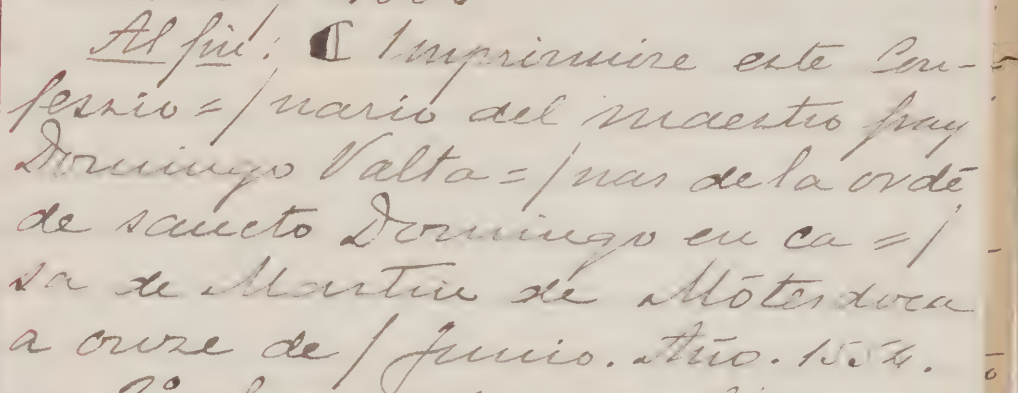 Al fin: ☾ Imprimiose este Con-
fessio=/nario del maestro fray
Domingo Valta=/nas de la ordē
de sancto Domingo en ca=/
sa de Martin de Mōtesdoca
a onze de / Junio. Año. 1554.